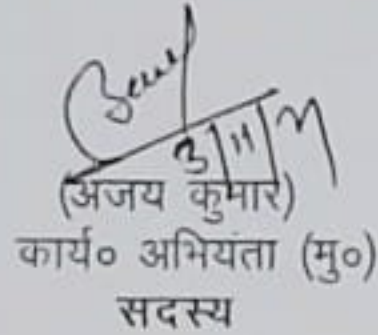 3/11/
(अजय कुमार)
कार्य० अभियंता (मु०)
सदस्य